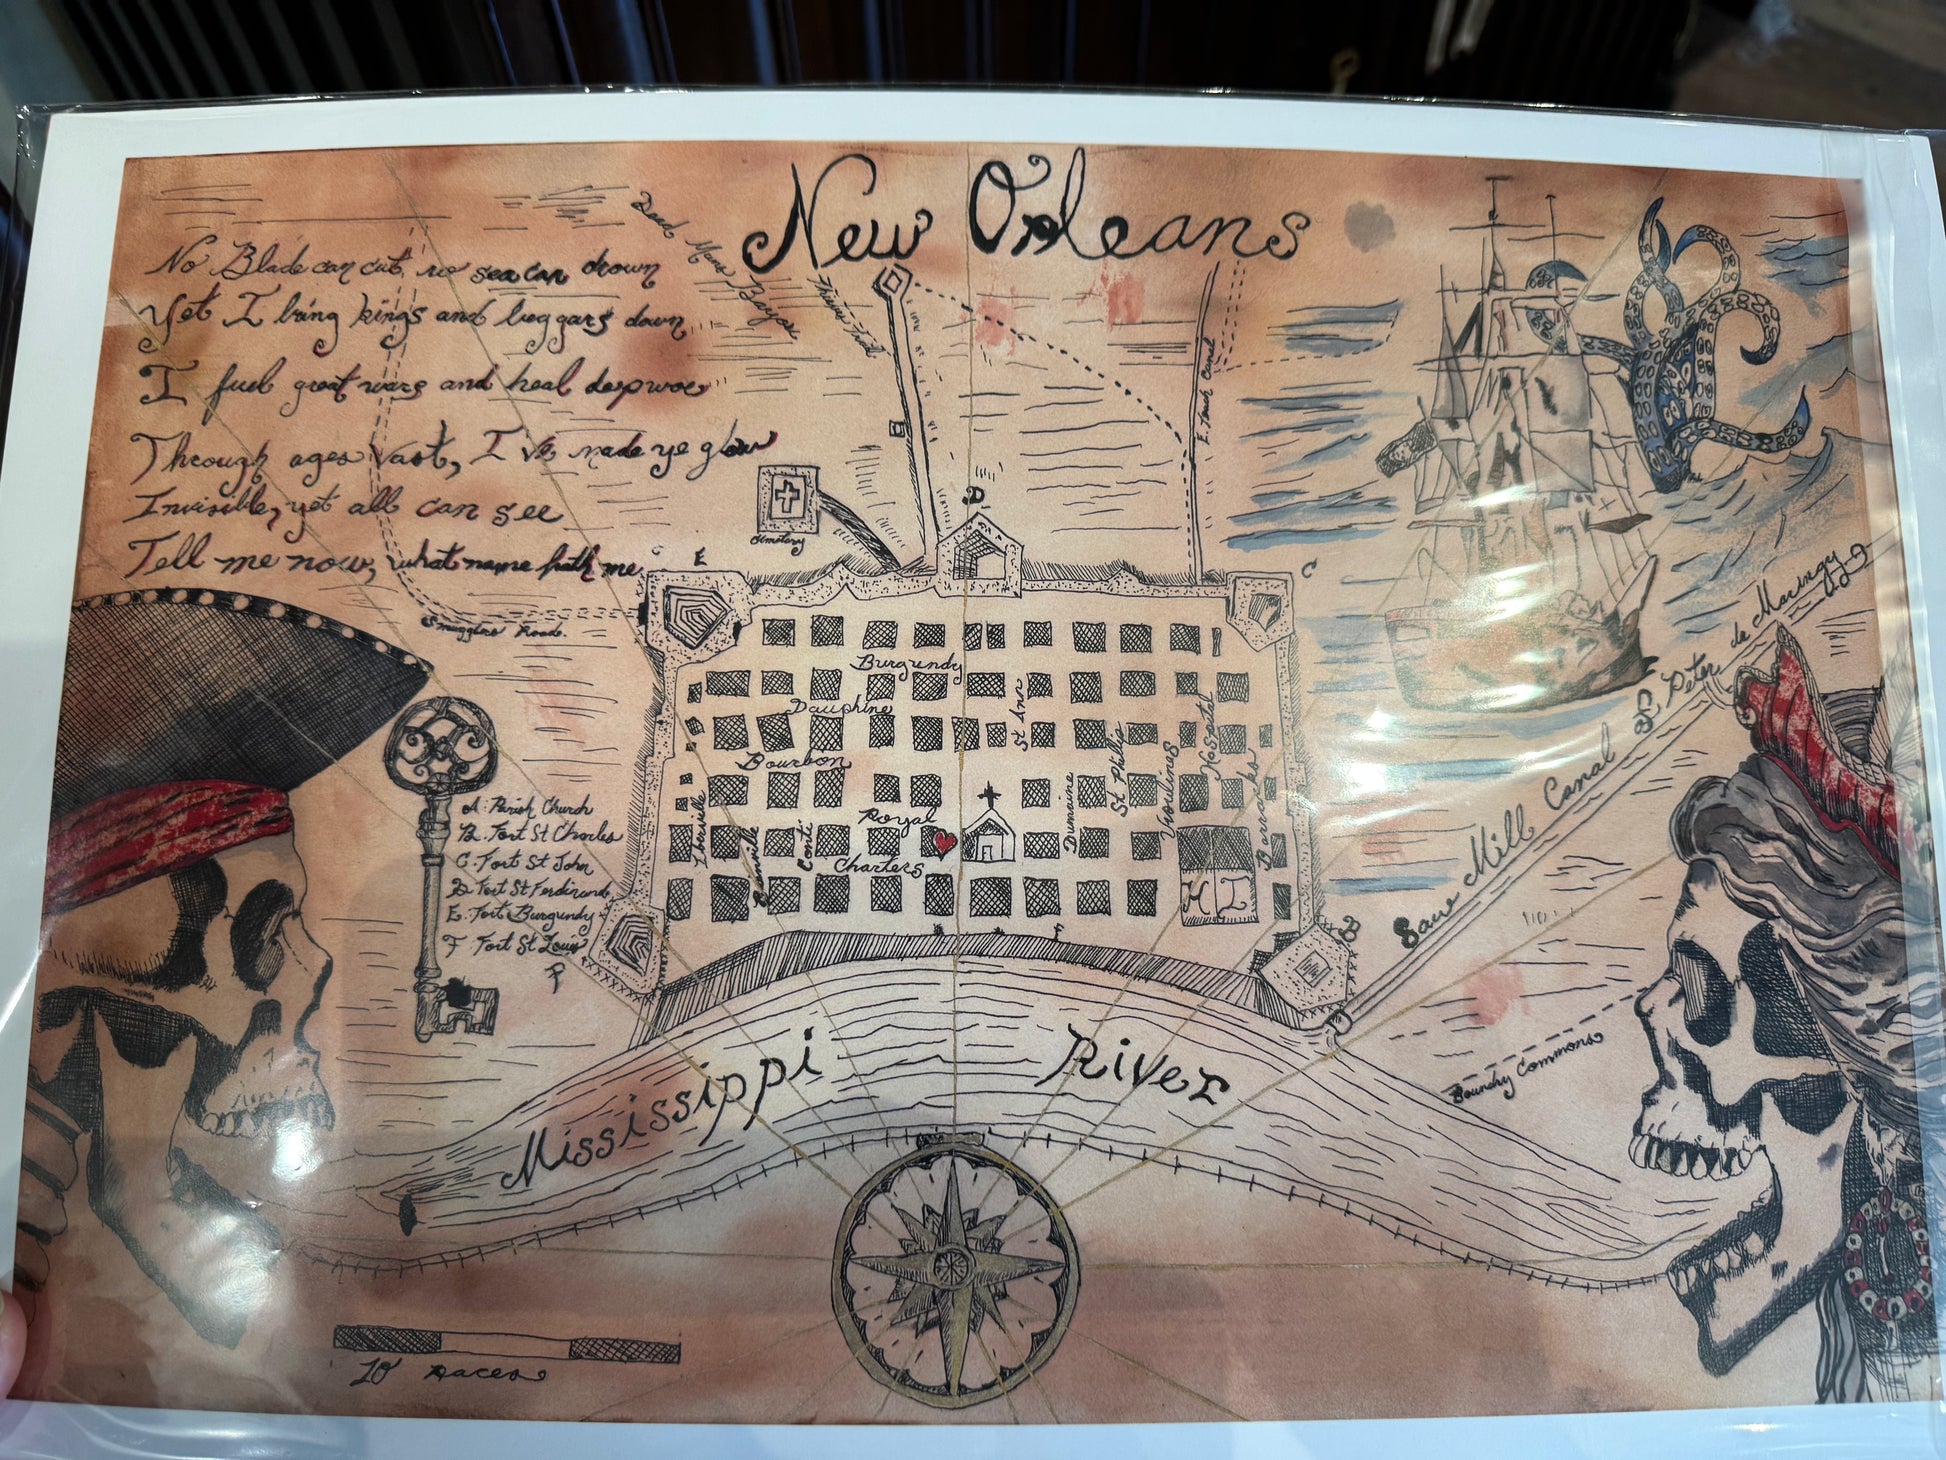 New Orleans
No Blade can cut, no sea can drown
Yet I bring kings and beggars down
I fuel great wars and heal deep woe
Through ages vast, I've made ye glow
Invisible, yet all can see
Tell me now, what name hath me
Dead Mans Bayou
Thieves Trail
E. Trench Canal
Cemetery
A
E
C
Smugglers Roade.
Burgundy
Dauphine
Bourbon
Royal
Charters
Iberville
Bienville
Conti
St Ann
Dumaine
St Phillip
Hospital
Barracks
H I
B
A. Parish Church
B. Fort St Charles
C. Fort St John
D. Fort St Ferdinand
E. Fort Burgundy
F Fort St Louis
F
Sawe Mill Canal of Peter de Maringy
Boundry Commons
Mississippi River
10 paces